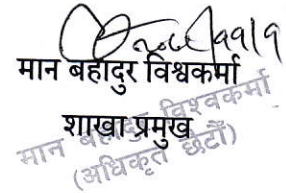 मान बहादुर विश्वकर्मा
शाखा प्रमुख
मान बहादुर विश्वकर्मा
(अधिकृत छैटौँ)